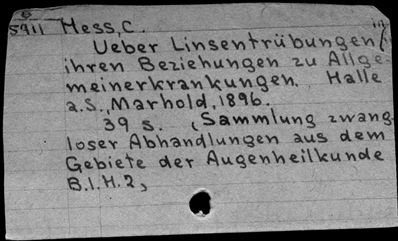 5911 Hess, C.
Ueber Linsentrübungen in
ihren Beziehungen zu Allge-
meinerkrankungen. Halle
a.S., Marhold, 1896.
39 s. (Sammlung zwang
loser Abhandlungen aus dem
Gebiete der Augenheilkunde
B.I.H.2,